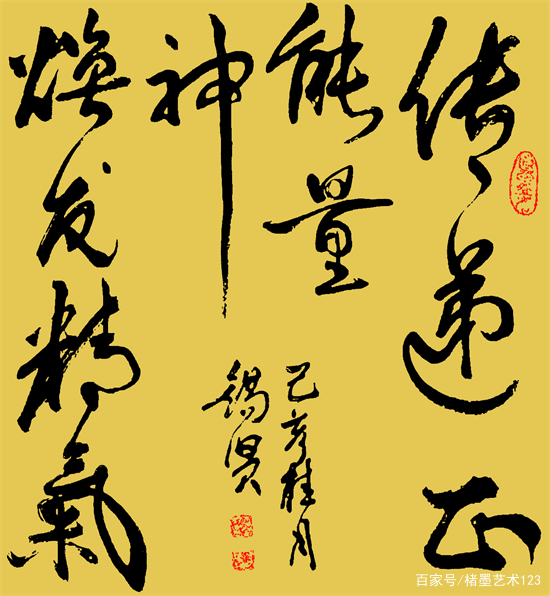 传递正
能量
焕发精氣
神
己亥桂月
锡贤
百家号/楮墨艺术123